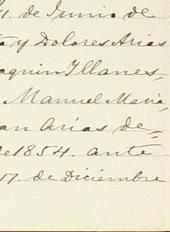 1. de Junio de
a y Dolores Arias
oaquin Yllanes,
Manuel Maria
an Arias de=
de 1854. ante
17. de Diciembre